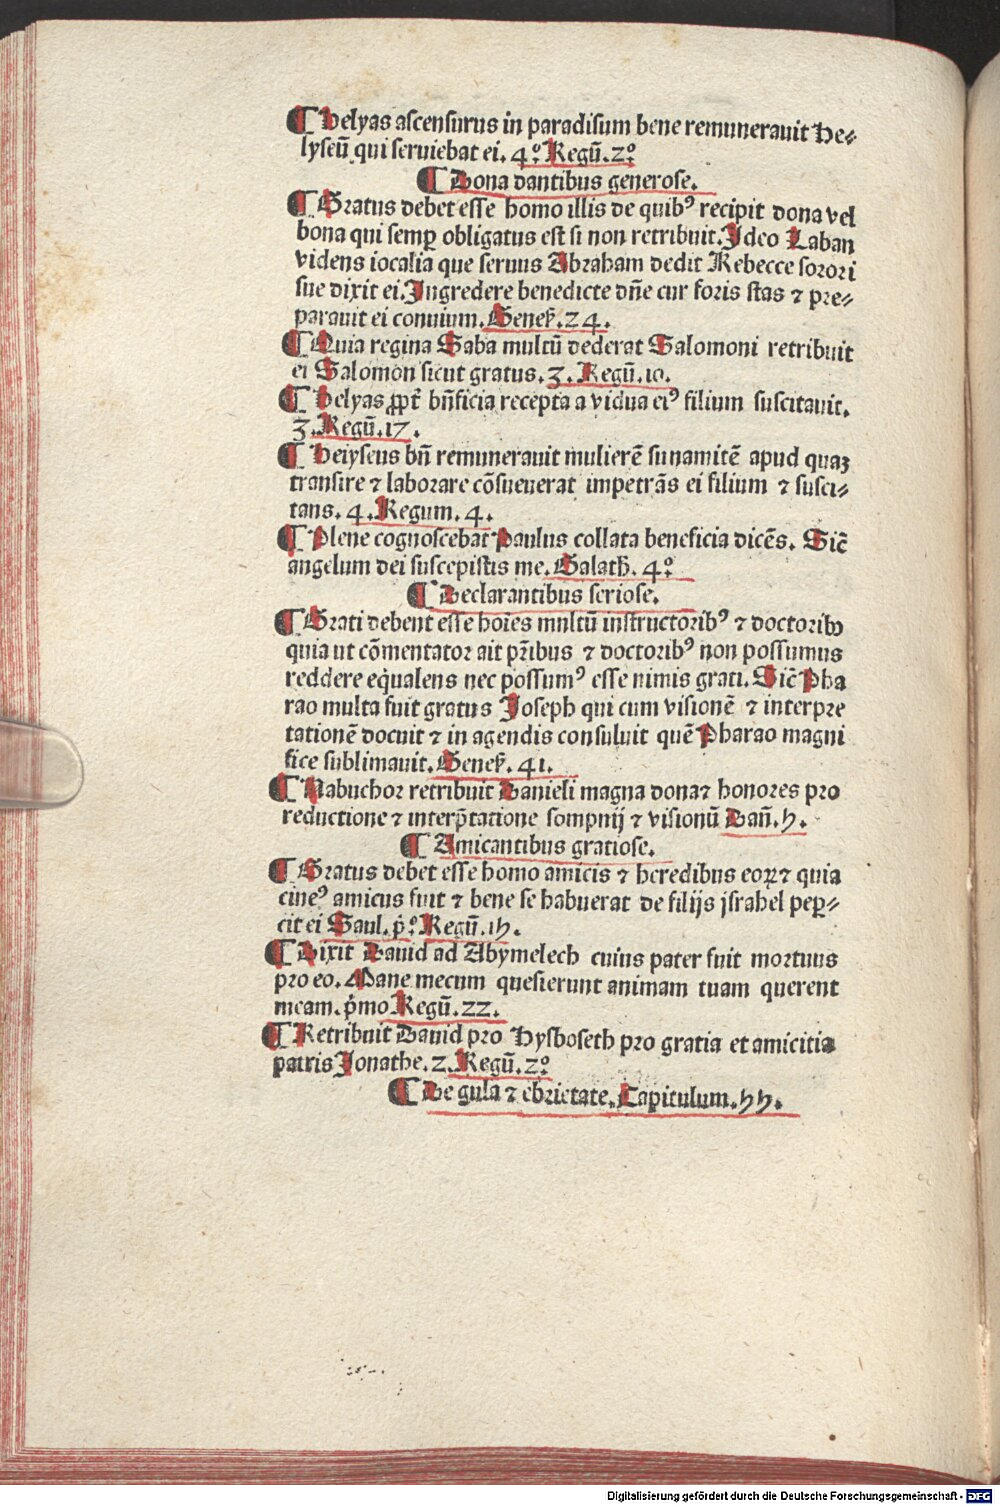 ¶ Helyas ascensurus in paradisum bene remunerauit He⸗
lyseū qui seruiebat ei. 4.º Regū. 2º
¶ Dona dantibus generose.
¶ Gratus debet esse homo illis de quibꝰ recipit dona vel
bona qui semꝑ obligatus est si non retribuit. Ideo Laban
videns iocalia que seruus Abraham dedit Rebecce sorori
sue dixit ei. Ingredere benedicte dn̄e cur foris stas ⁊ pre⸗
parauit ei conuiuium. Geneẜ. 24.
¶ Quia regina Saba multū dederat Salomoni retribuit
ei Salomon sicut gratus. 3. Regū. 10.
¶ Helyas ꝓpt̄ bn̄ficia recepta a vidua eiꝰ filium suscitauit.
3. Regū. 17.
¶ Helyseus bn̄ remunerauit mulierē sunamitē apud quaꝫ
transire ⁊ laborare cōsueuerat impetrās ei filium ⁊ susci⸗
tans. 4. Regum. 4.
¶ Plene cognoscebat Paulus collata beneficia dicēs. Sic̄
angelum dei suscepistis me. Galath. 4.º
¶ Declarantibus seriose.
¶ Grati debent esse hoīes multū instructoribꝰ ⁊ doctoribꝰ
quia ut cōmentator ait pr̄ibus ⁊ doctoribꝰ non possumus
reddere eq̇ualens nec possumꝰ esse nimis grati. Sic̄ Pha
rao multa fuit gratus Joseph qui cum visionē ⁊ interpre
tationē docuit ⁊ in agendis consuluit quē Pharao magni
fice sublimauit. Geneẜ. 41.
¶ Nabuchor retribuit Danieli magna dona ⁊ honores pro
reductione ⁊ interp̄tatione sompnij ⁊ visionū Dan̄. 2.
¶ Amicantibus gratiose.
¶ Gratus debet esse homo amicis ⁊ heredibus eoꝝ ⁊ quia
cineꝰ amicus fuit ⁊ bene se habuerat de filijs jsrahel peꝑ⸗
cit ei Saul. p̄.º Regū. 15.
¶ Dixit Dauid ad Abymelech cuius pater fuit mortuus
pro eo. Mane mecum quesierunt animam tuam querent
meam. p̄mo Regū. 22.
¶ Retribuit Dauid pro Hysboseth pro gratia et amicitia
patris Jonathe. 2. Regū. 2º
¶ De gula ⁊ ebrietate. Capitulum. 55.
Digitalisierung gefördert durch die Deutsche Forschungsgemeinschaft - DFG